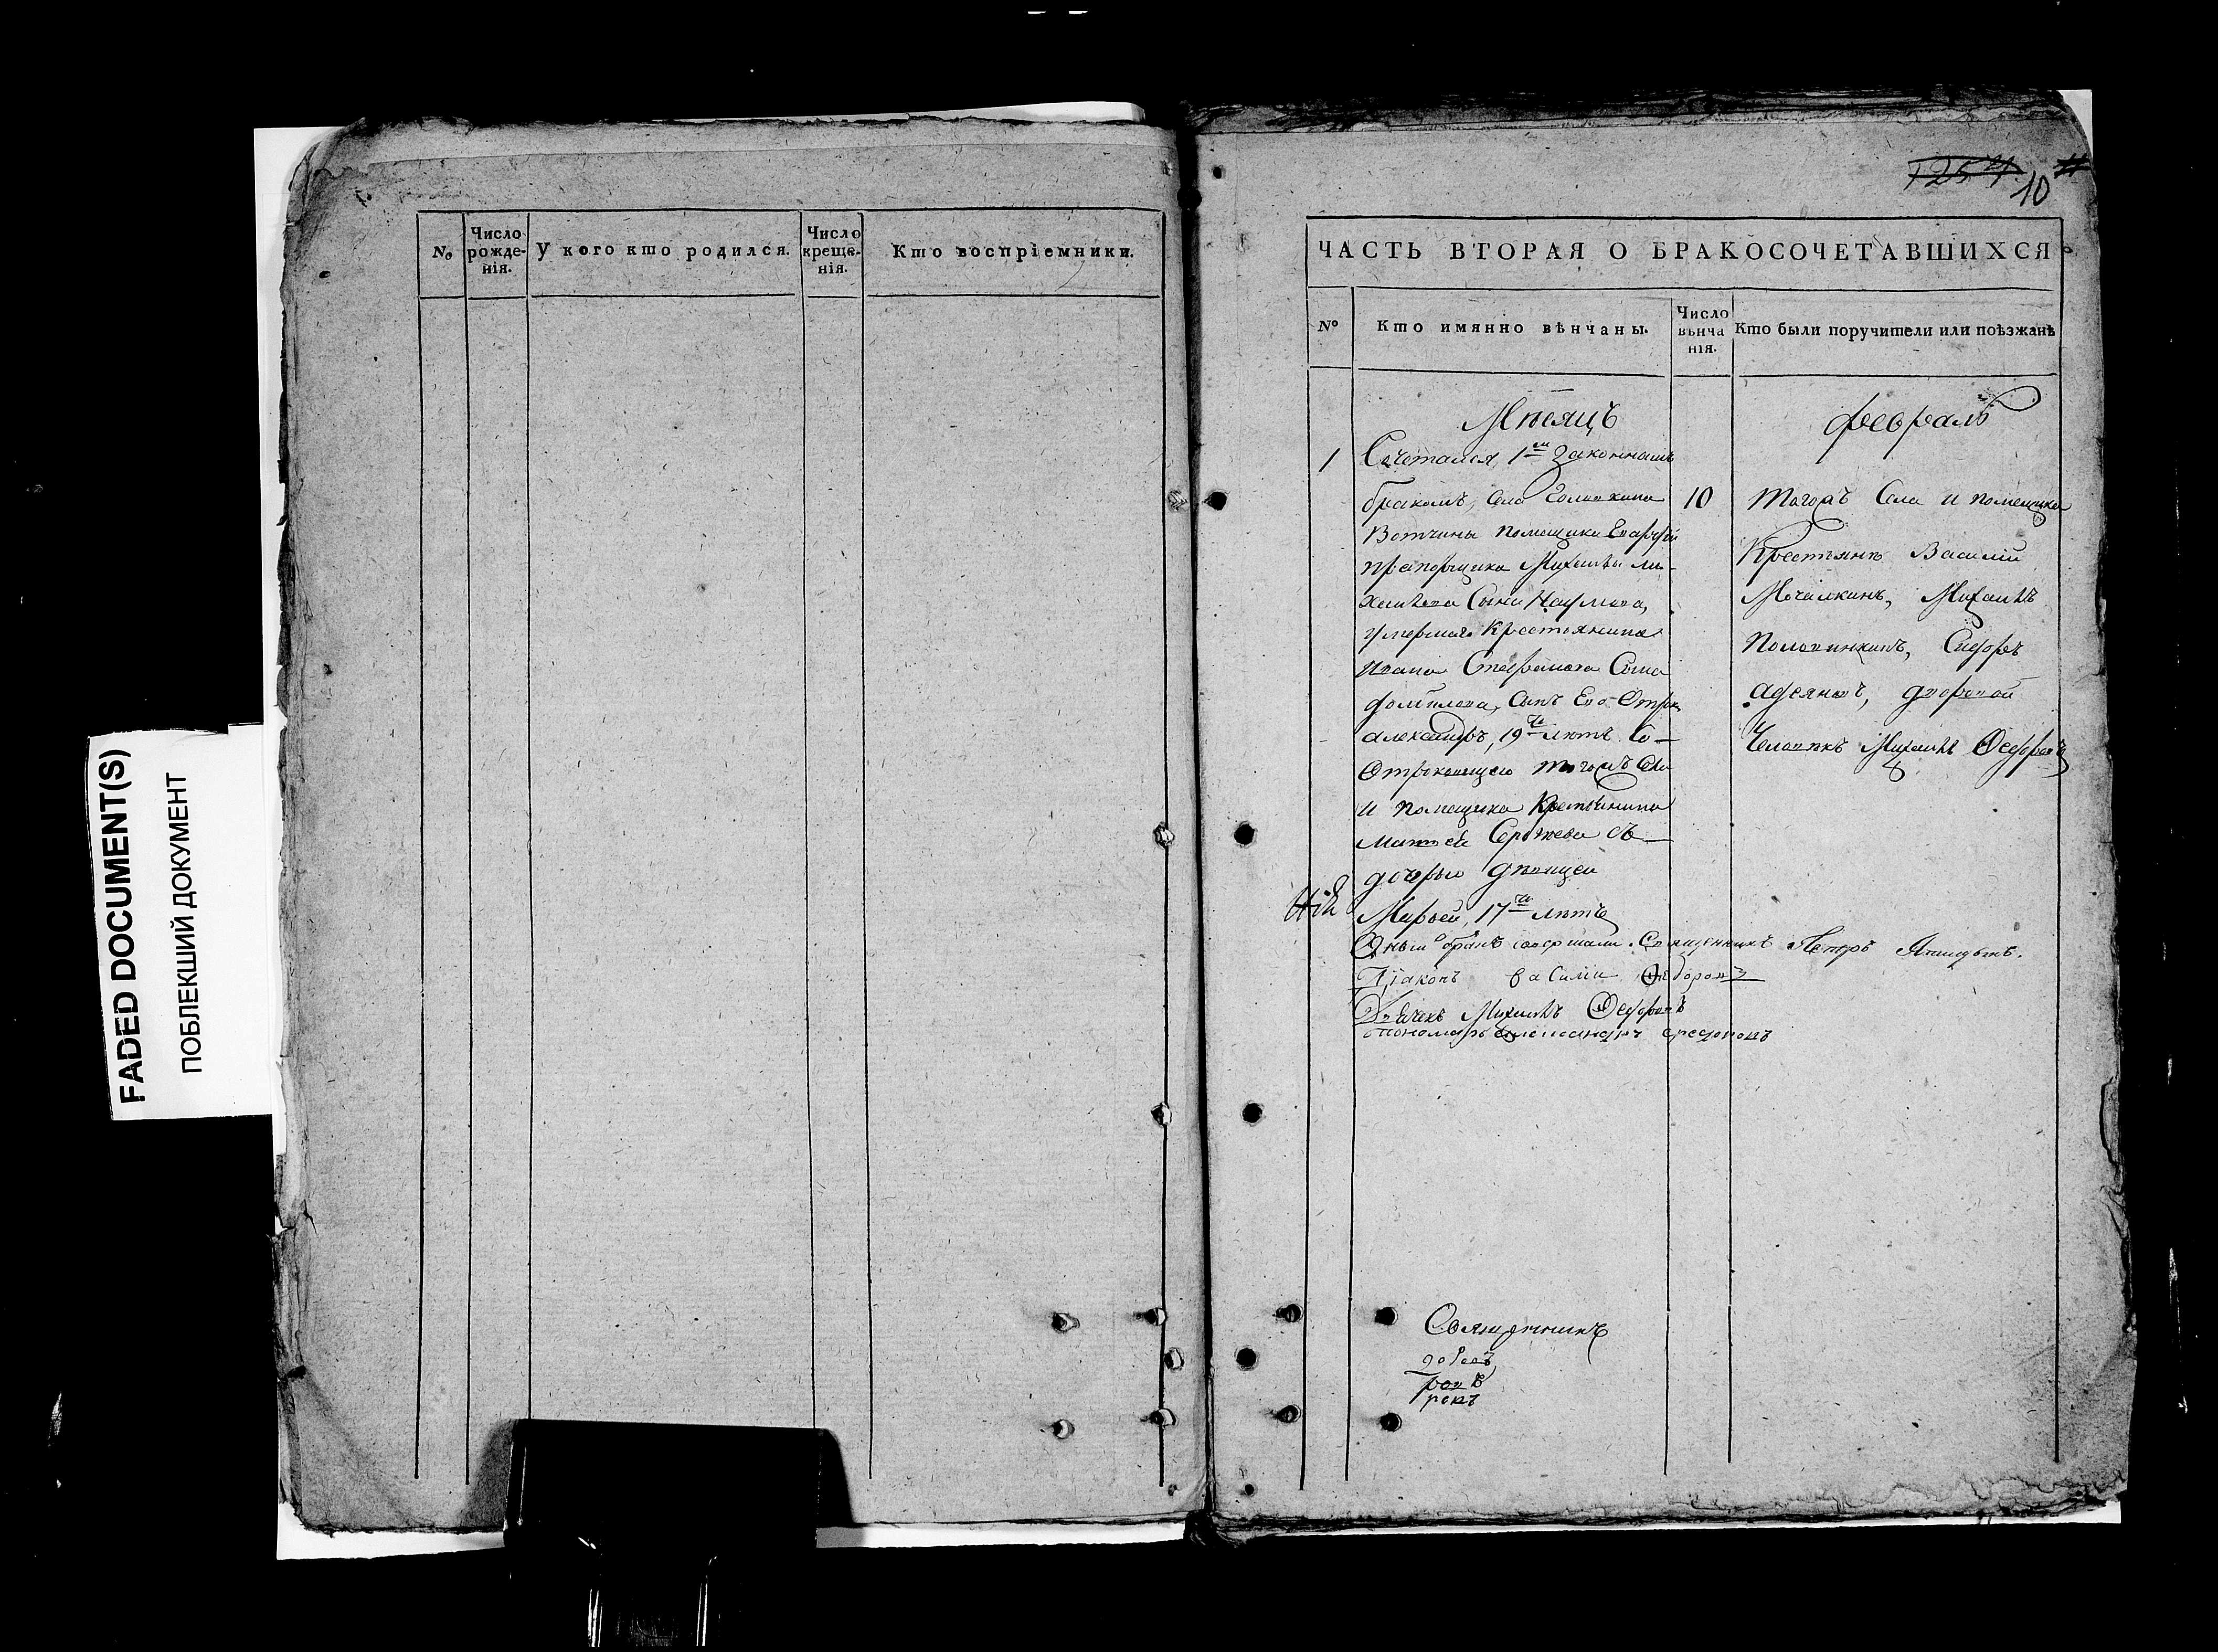 FADED DOCUMENT(S)
ПОБЛЕКШИЙ ДОКУМЕНТ
No
Число рожденія.
У кого кто родился.
Число крещенія.
Кто воспріемники.
1254
10
ЧАСТЬ ВТОРАЯ О БРАКОСОЧЕТАВШИХСЯ
No
Кто имянно вѣнчаны.
Число вѣнчанія.
Кто были поручители или поѣзжанѣ
Мѣсяцъ
Февраль
1
Сочетался 1м законнымъ
бракомъ, села Головкина
Вотчины помещика Гвардіи
прапорщика Михаила ми-
хайлова Сына Наумова,
умершаго Крестьянина
ивана Стефанова Сына
сынъ Его Отрок
александръ, 19ти лѣтъ Со
Отроковицею тогожъ села
и помещика Крестьянина
Матвея Сергѣева съ
дочерью девицей
Марьей, 17ти лѣтъ
10
Тогожъ Села и помещика
Крестьянѣ Василій
Мочалкинъ, Михаилъ
Половинкинъ, Сидоръ
адеяновъ, дворовой
Человѣкъ Михаилъ Федоровъ
Оный бракъ совершали Священникъ Петръ
Діаконъ василіи Федоровъ
Дьячекъ Михаилъ Федоровъ
пономарь александръ
Священникъ